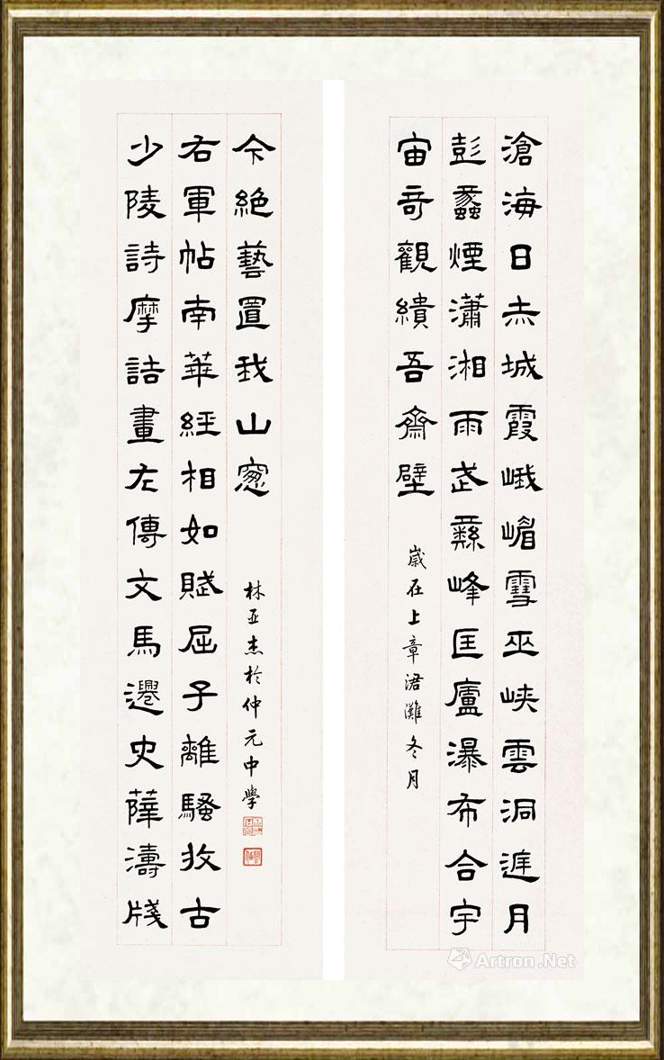 滄海日赤城霞峨嵋雪巫峽雲洞庭月
彭蠡煙瀟湘雨武彝峰匡廬瀑布合宇
宙奇觀繢吾齋壁
歲在上章涒灘冬月
少陵詩摩詰畫左傳文馬遷史薛濤牋
右軍帖南華經相如賦屈子離騷收古
今絕藝置我山窻
林亞杰於仲元中學
Artron.Net